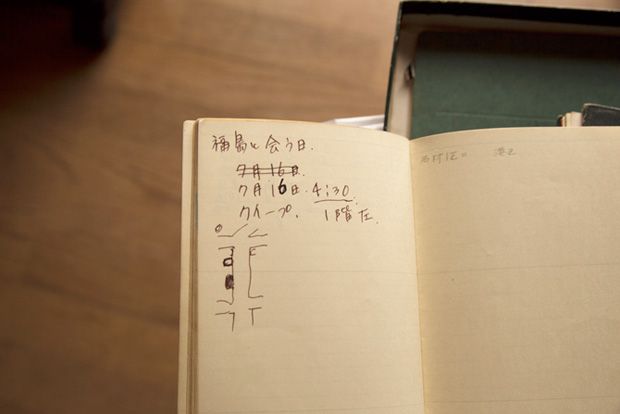 福島と会う日.
7月16日.
7月16日. 4:30
クイープ. 1階左.